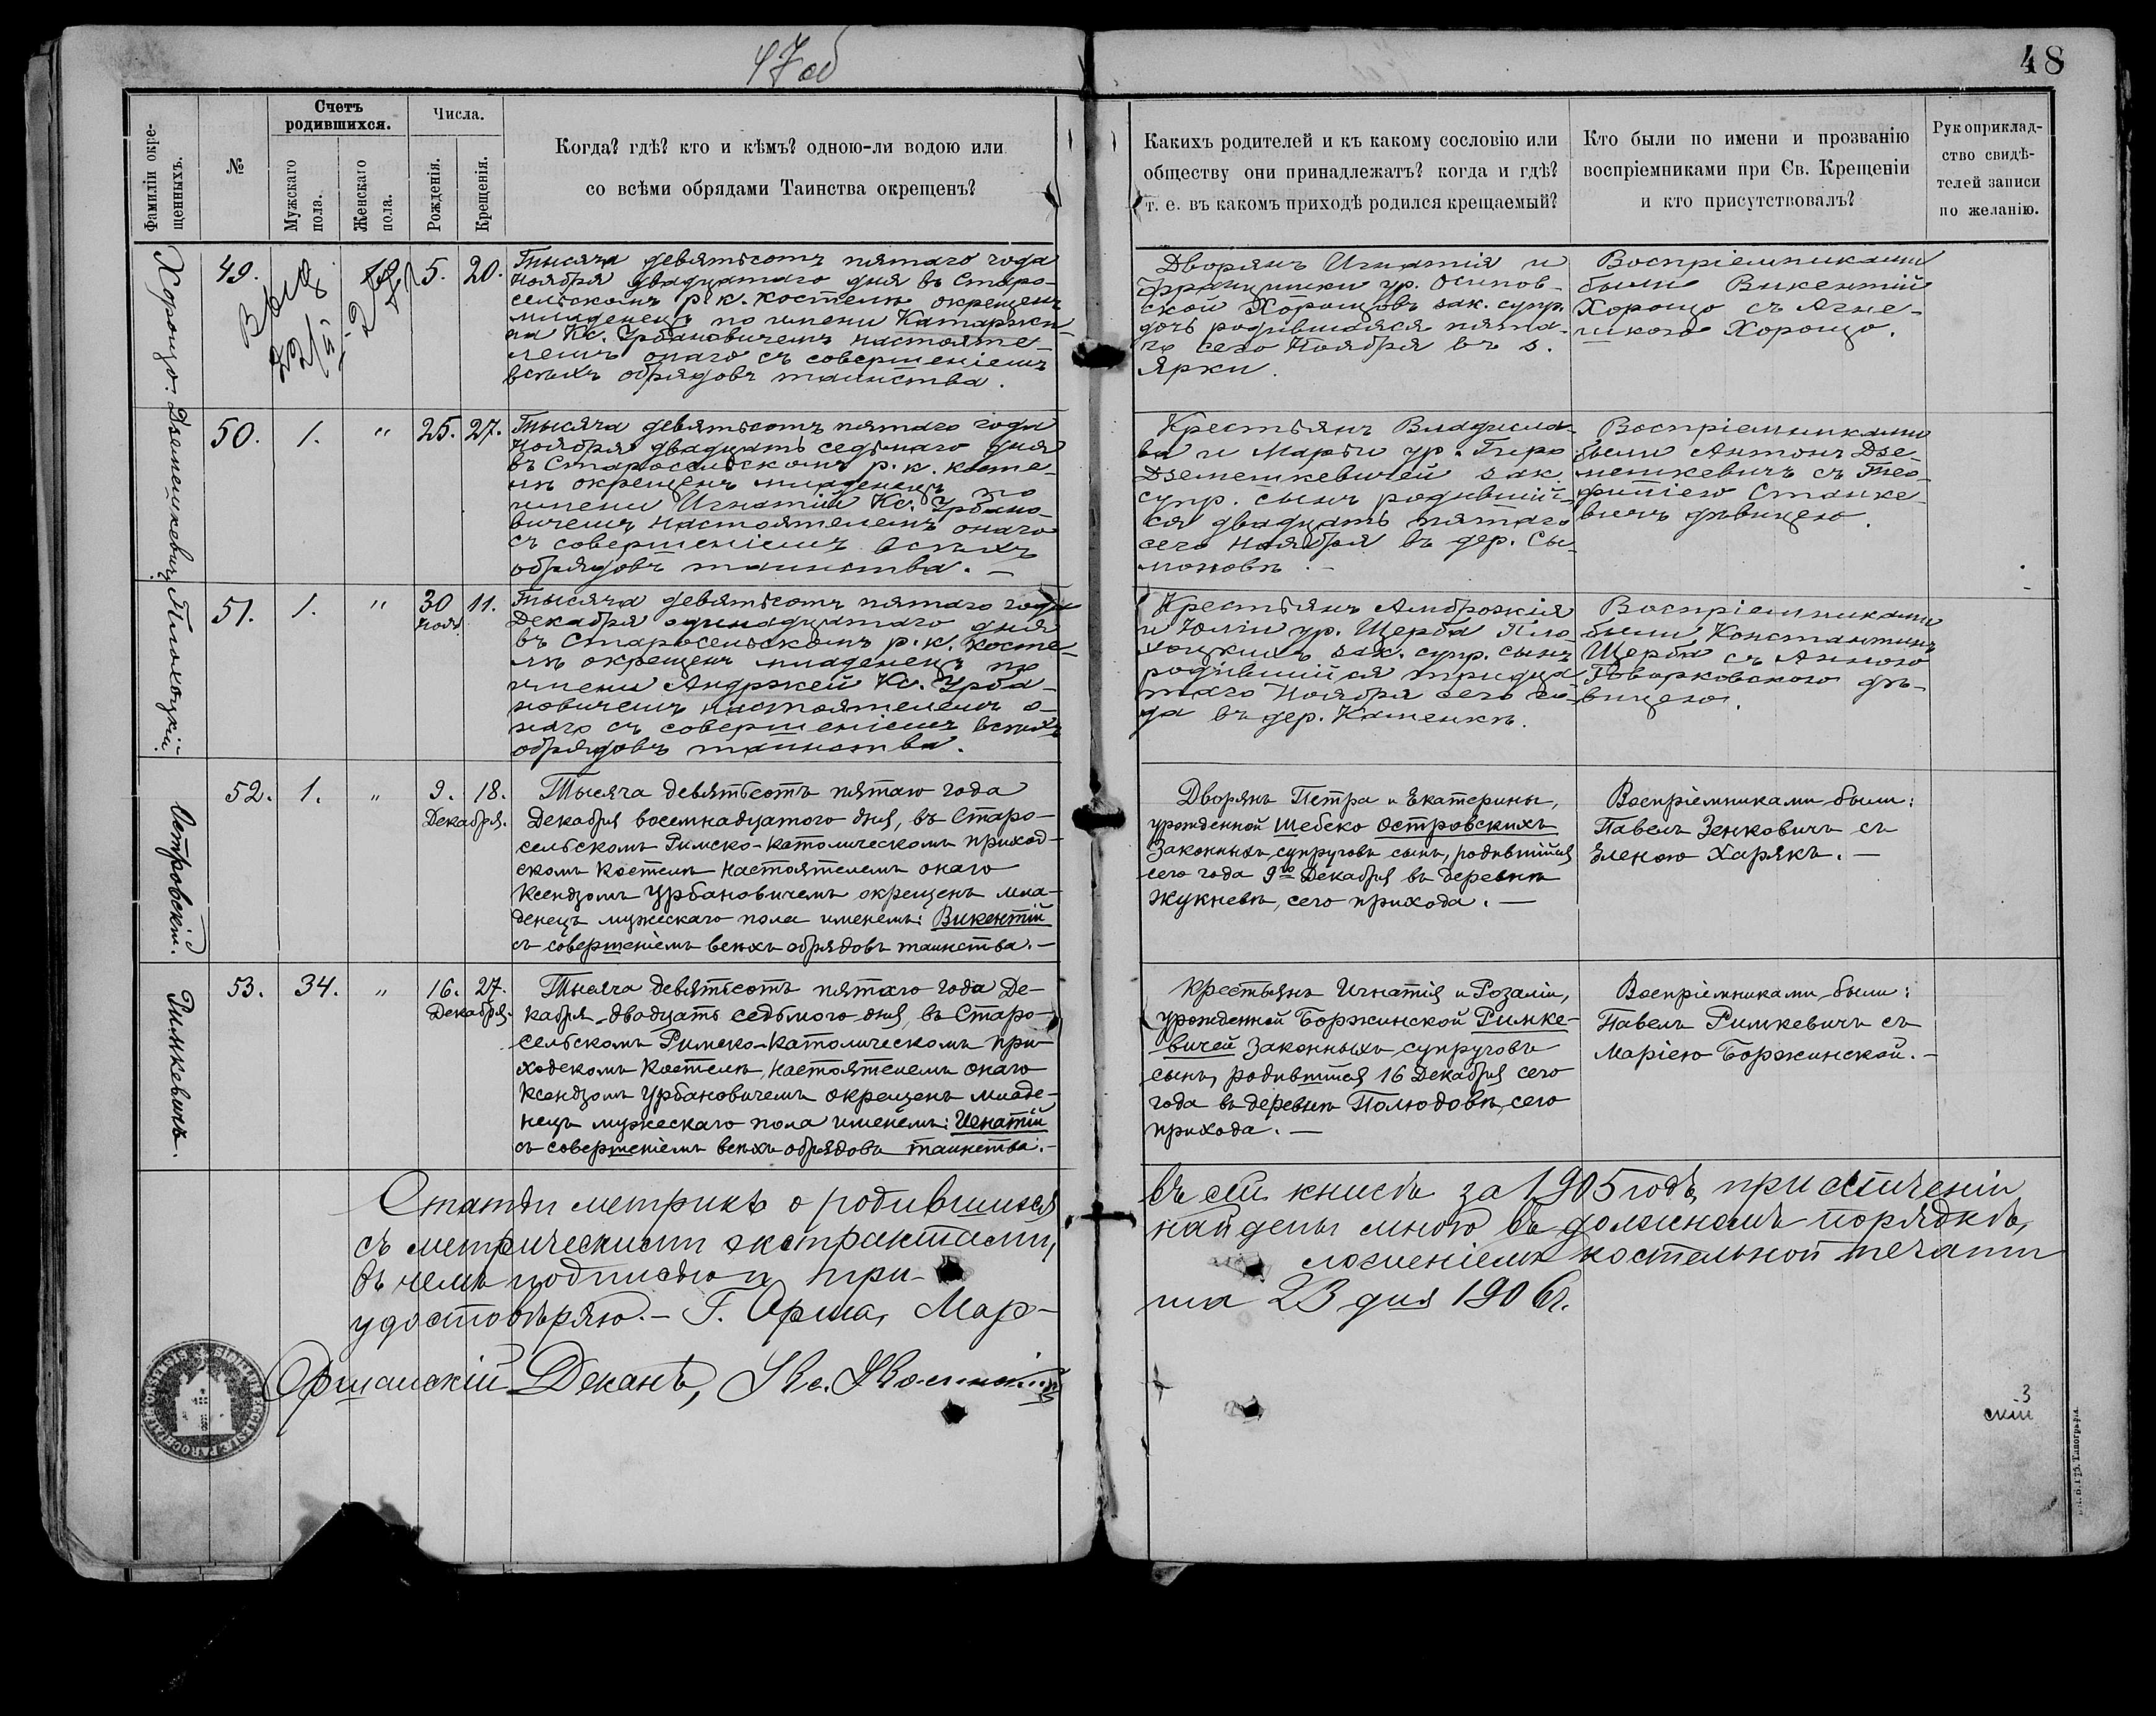 47 об
48
Фамиліи окре-
щенныхъ.
№
Счетъ
родившихся.
Мужскаго
пола.
Женскаго
пола.
Числа.
Рожденія.
Крещенія.
Когда? гдѣ? кто и кѣмъ? одною-ли водою или
со всѣми обрядами Таинства окрещенъ?
Какихъ родителей и къ какому сословію или
обществу они принадлежатъ? когда и гдѣ?
т. е. въ какомъ приходѣ родился крещаемый?
Кто были по имени и прозванію
воспріемниками при Св. Крещеніи
и кто присутствовалъ?
Рукоприклад-
ство свидѣ-
телей записи
по желанію.
Хорощо.
49.
5.
20.
Тысяча девятьсотъ пятаго года
Ноября двадцатаго дня въ Старо-
сельскомъ р. к. костелѣ окрещенъ
младенецъ по имени Катаржи-
на Кс. Урбановичемъ настояте-
лемъ онаго съ совершеніемъ
всѣхъ обрядовъ таинства.
Дворянъ Игнатія и
Францишки ур. Осипов-
ской Хорощовъ зак. супр.
дочь родившаяся пята-
го сего Ноября въ з.
Ярки.
Воспріемниками
были Викентій
Хорощо съ Агне-
шкою Хорощо.
Дземешкевичъ.
50.
1.
"
25.
27.
Тысяча девятьсотъ пятаго года
Ноября двадцать седьмаго дня
въ Старосельскомъ р. к. косте-
лѣ окрещенъ младенецъ по
имени Игнатій Кс. Урбано-
вичемъ настоятелемъ онаго
съ совершеніемъ всѣхъ
обрядовъ таинства. —
Крестьянъ Владисла-
ва и Марьи ур. Гиро
Дземешкевичей зак.
супр. сынъ родившій-
ся двадцать пятаго
сего Ноября въ дер. Сы-
моновѣ. —
Воспріемниками
были Антонъ Дзе-
мешкевичъ съ Тео-
филіею Станке-
вичъ дѣвицею.
Плохоцкій.
51.
1.
"
30
Нояб.
11.
Тысяча девятьсотъ пятаго года
Декабря одинадцатаго дня
въ Старосельскомъ р. к. косте-
лѣ окрещенъ младенецъ по
имени Андржей Кс. Урба-
новичемъ настоятелемъ о-
наго съ совершеніемъ всѣхъ
обрядовъ таинства.
Крестьянъ Амброжія
и Юліи ур. Щерба Пло-
хоцкихъ зак. супр. сынъ
родившійся тридца-
таго Ноября сего го-
да въ дер. Каменкѣ.
Воспріемниками
были Константинъ
Щерба съ Анною
Говорковскою дѣ-
вицею.
Островскій.
52.
1.
"
9.
18.
Декабря.
Тысяча девятьсотъ пятаго года
Декабря восемнадцатого дня, въ Старо-
сельскомъ Римско-Католическомъ приход-
скомъ Костелѣ Настоятелемъ онаго
Ксендзомъ Урбановичемъ окрещенъ мла-
денецъ мужескаго пола именемъ: Викентій
съ совершеніемъ всѣхъ обрядовъ таинства. —
Дворянъ Петра и Екатерины,
урожденной Шебеко Островскихъ
Законныхъ супруговъ сынъ, родившійся
сего года 9го Декабря въ деревнѣ
Жукневѣ, сего прихода. —
Воспріемниками были:
Павелъ Зенковичъ съ
Еленою Харякъ. —
Римкевичъ.
53.
34.
"
16.
27.
Декабря.
Тысяча девятьсотъ пятаго года Де-
кабря двадцать седьмого дня, въ Старо-
сельскомъ Римско-Католическомъ при-
ходскомъ Костелѣ, Настоятелемъ онаго
Ксендзомъ Урбановичемъ окрещенъ младе-
нецъ мужескаго пола именемъ: Игнатій
съ совершеніемъ всѣхъ обрядовъ таинства. —
Крестьянъ Игнатія и Розаліи,
урожденной Боржинской Римке-
вичей Законныхъ супруговъ
сынъ, родившійся 16 Декабря сего
года въ деревнѣ Полюдовѣ, сего
прихода. —
Воспріемниками были:
Павелъ Римкевичъ съ
Маріею Боржинской. —
Статьи метрикъ о родившихся
въ сей книгѣ за 1905 годъ, при сличеніи
съ метрическими экстрактами,
найдены мною въ должномъ порядкѣ,
въ чемъ подписью и при-
ложеніемъ костельной печати
удостовѣряю. — Г. Орша, Мар-
та 23 дня 1906 г.
Оршанскій Деканъ, Кс.
скій